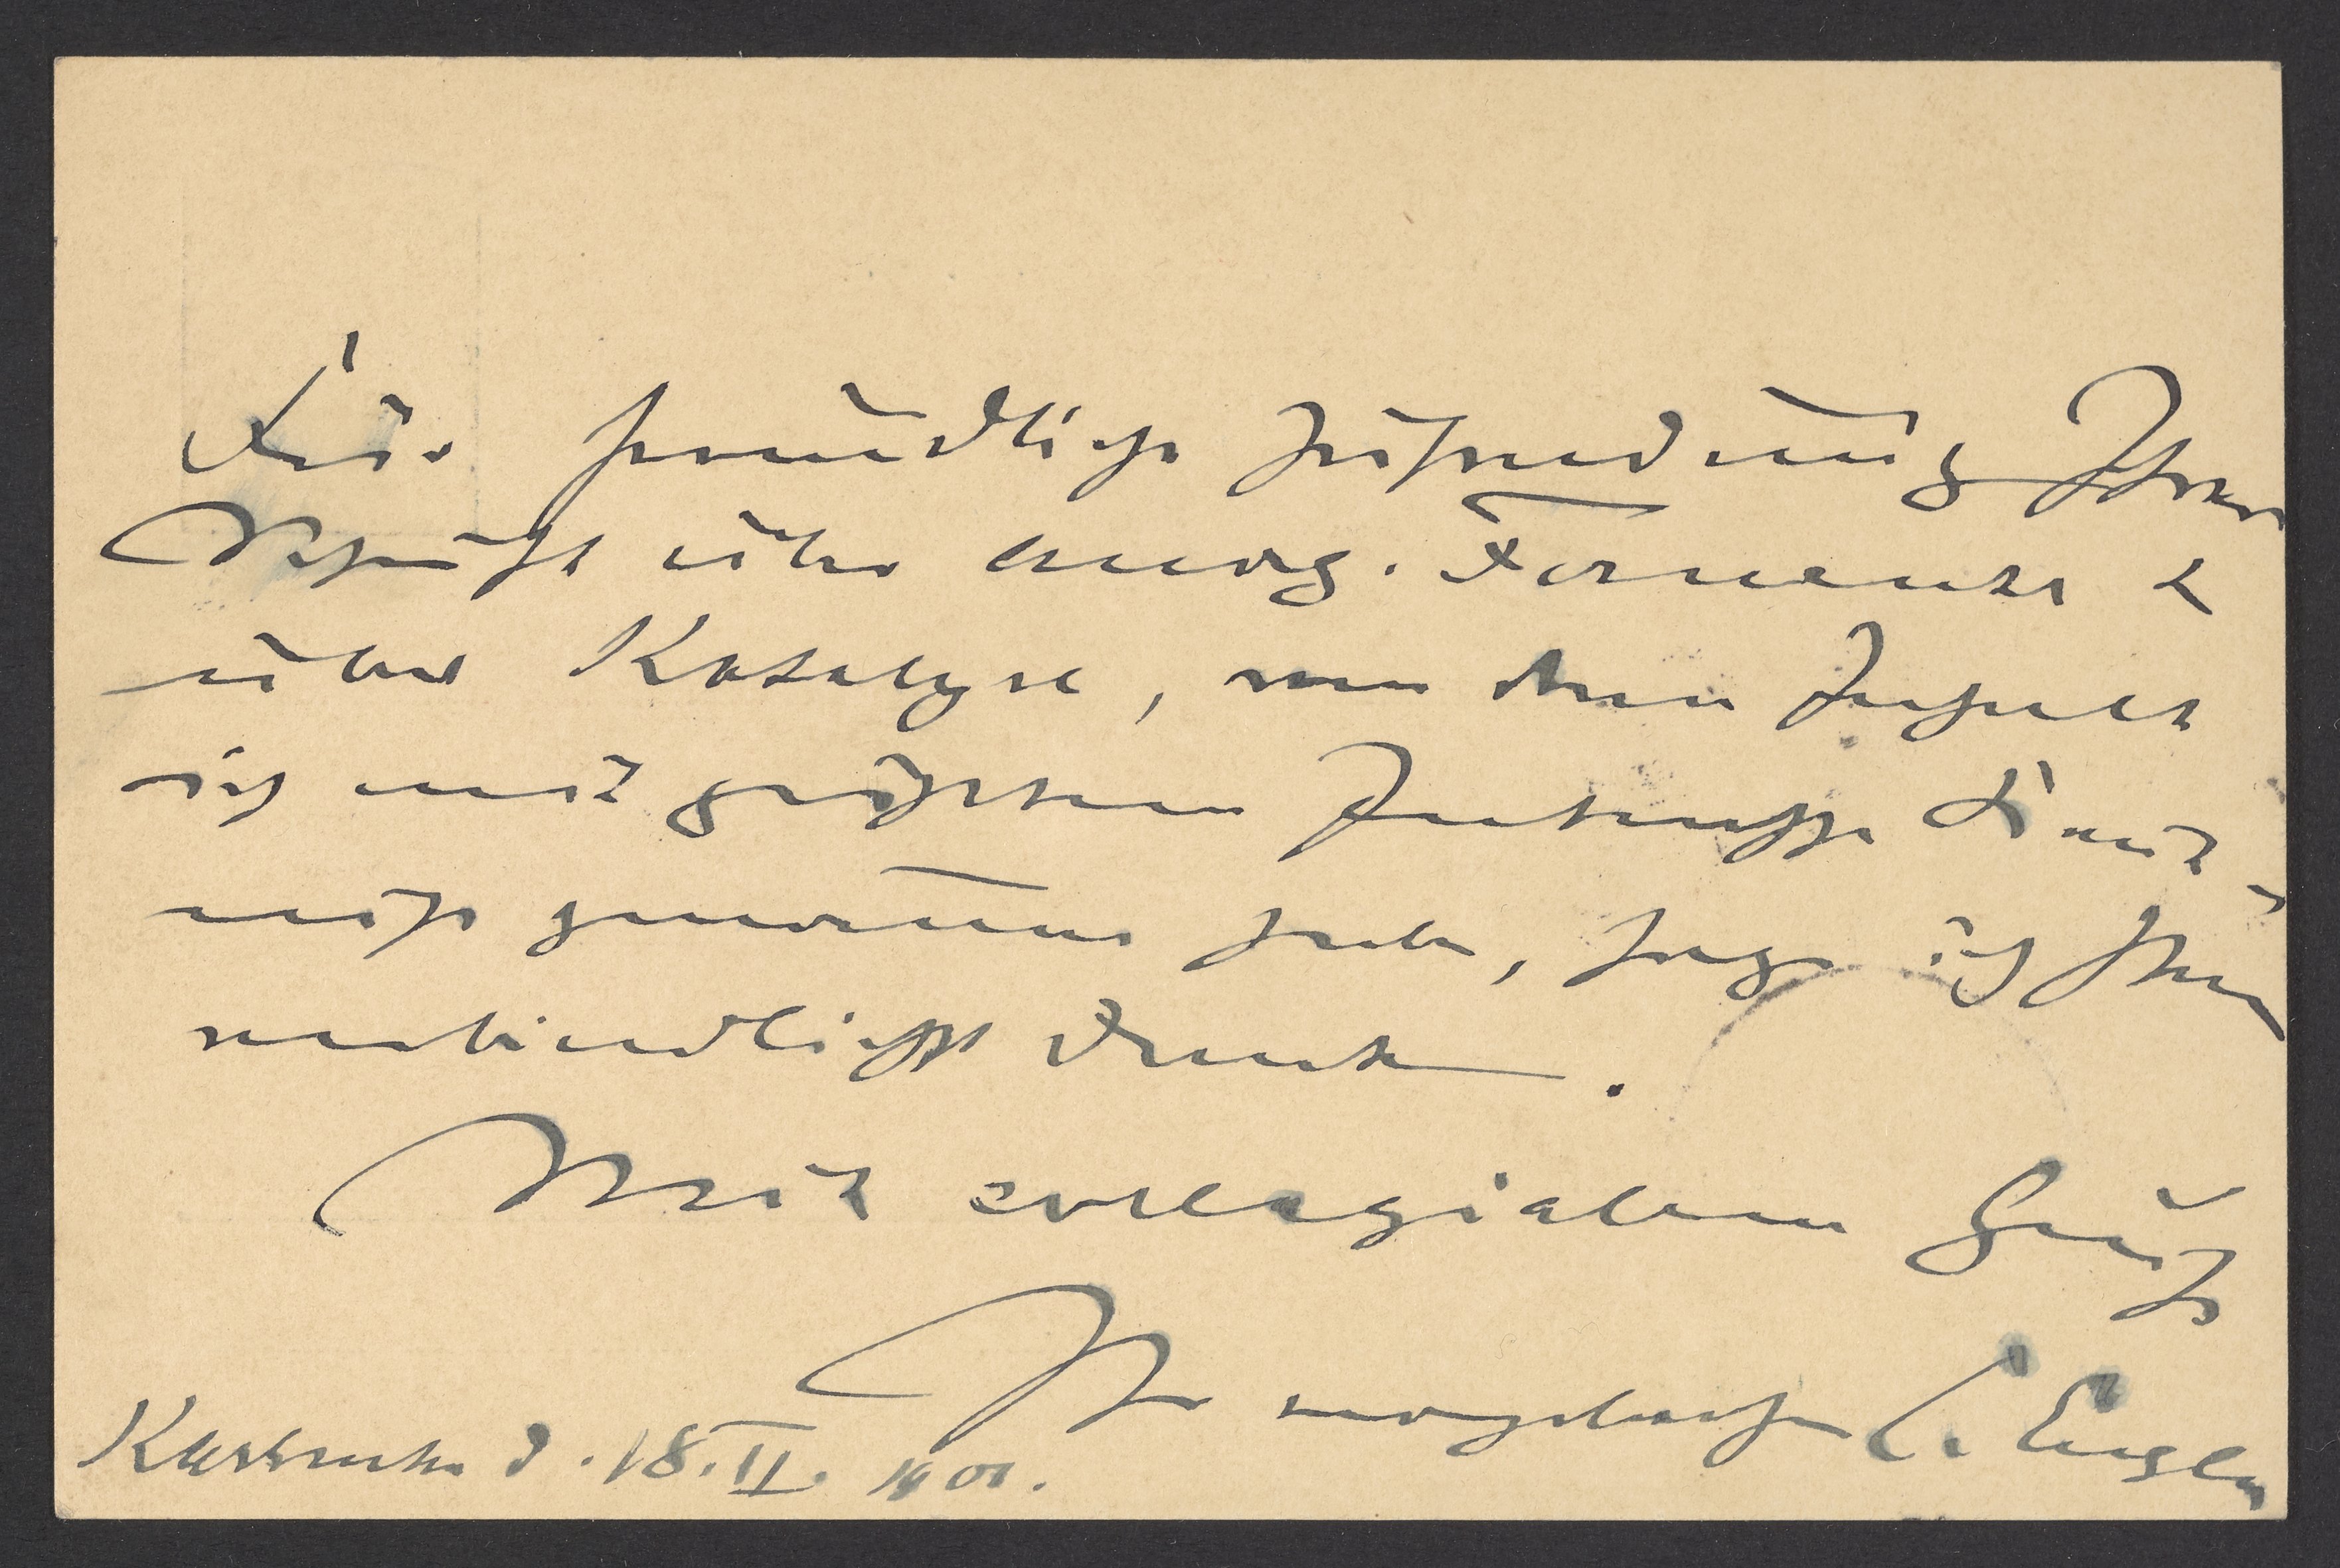 Für freundliche Zusendung Ihrer
Schrift über anorg. Fermente &
über Katalyse, von deren Inhalt
ich mit größtem Interesse Kennt-
niß genommen habe, sage ich Ihnen
verbindlichst Dank.
Mit collegialem Gruß
Ihr ergebenster C. Engler
Karlsruhe d. 18. II. 1901.